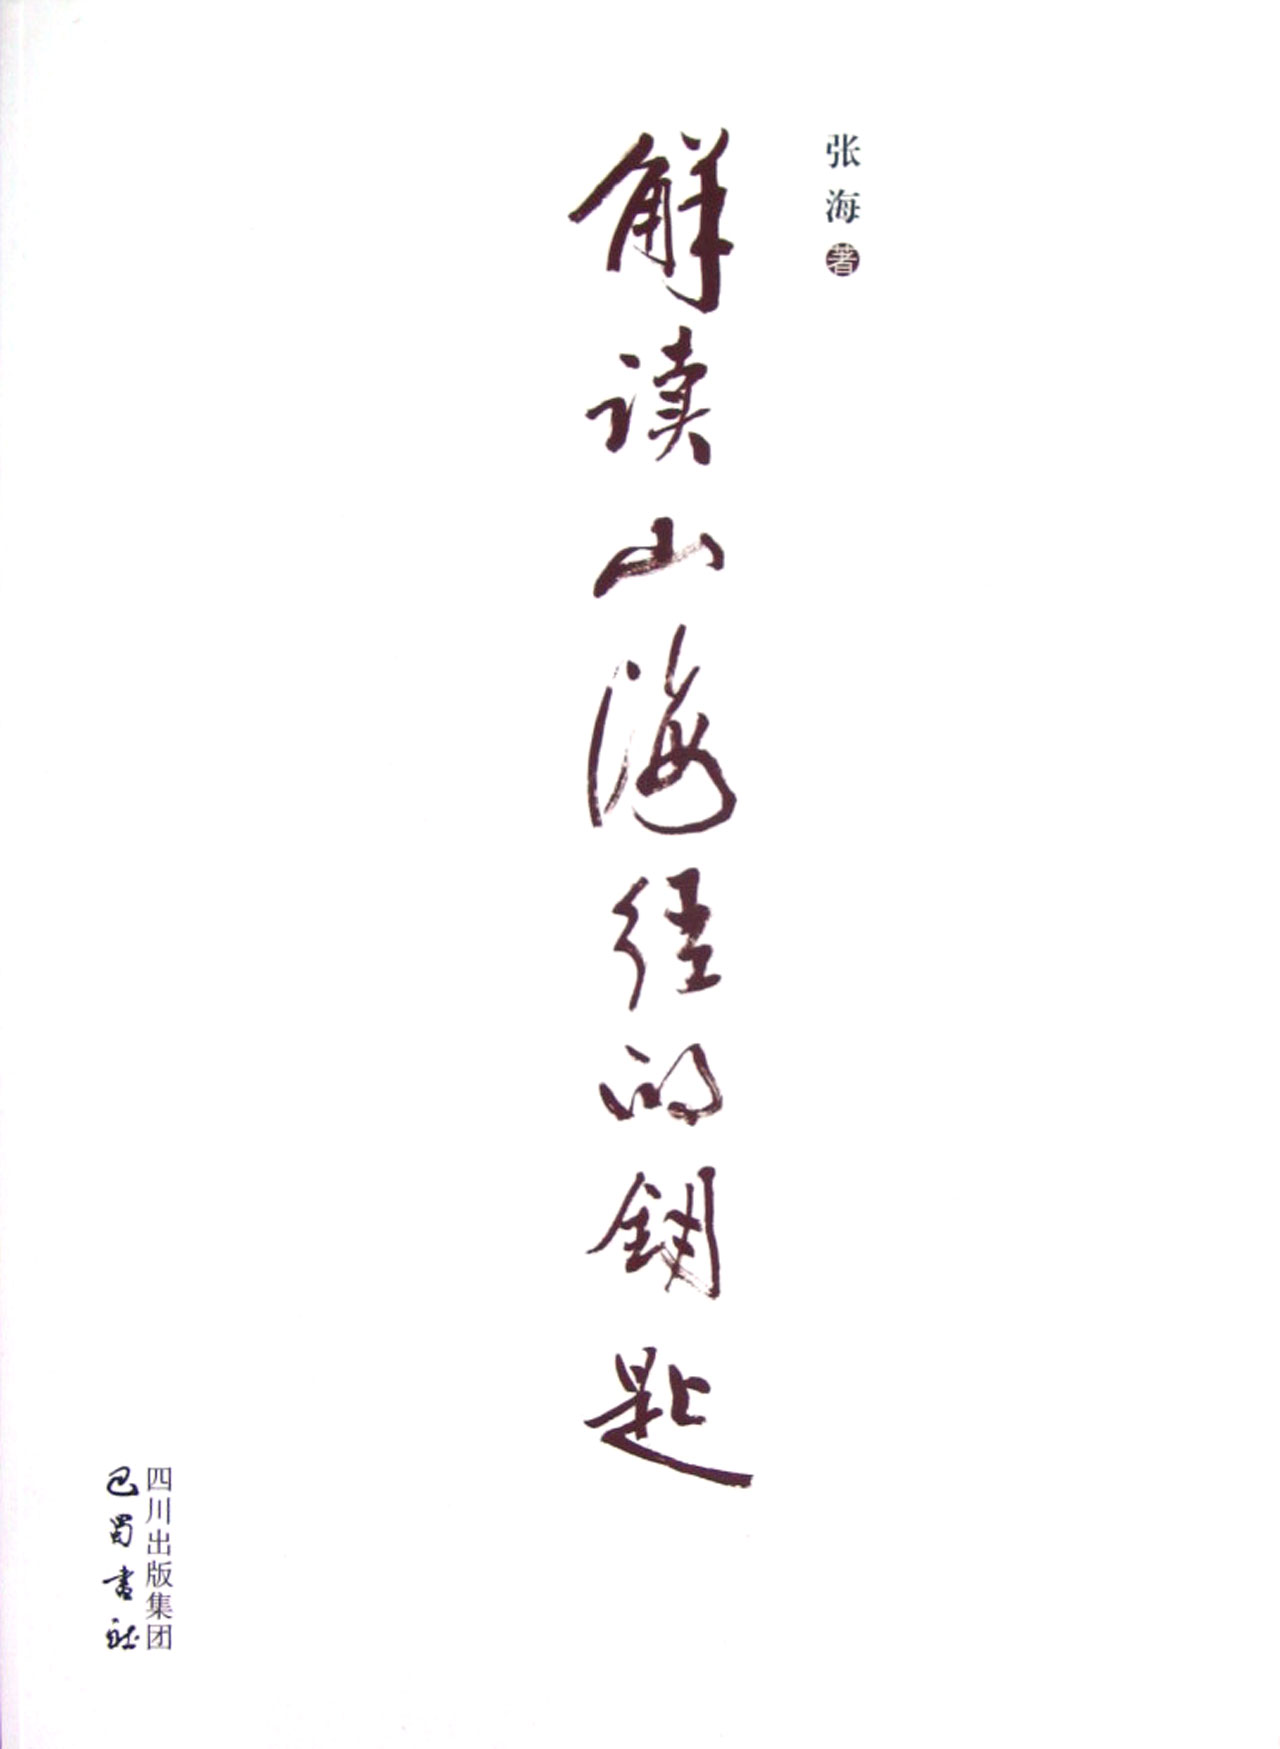 张海著
解读山海经的钥匙
四川出版集团
巴蜀书社